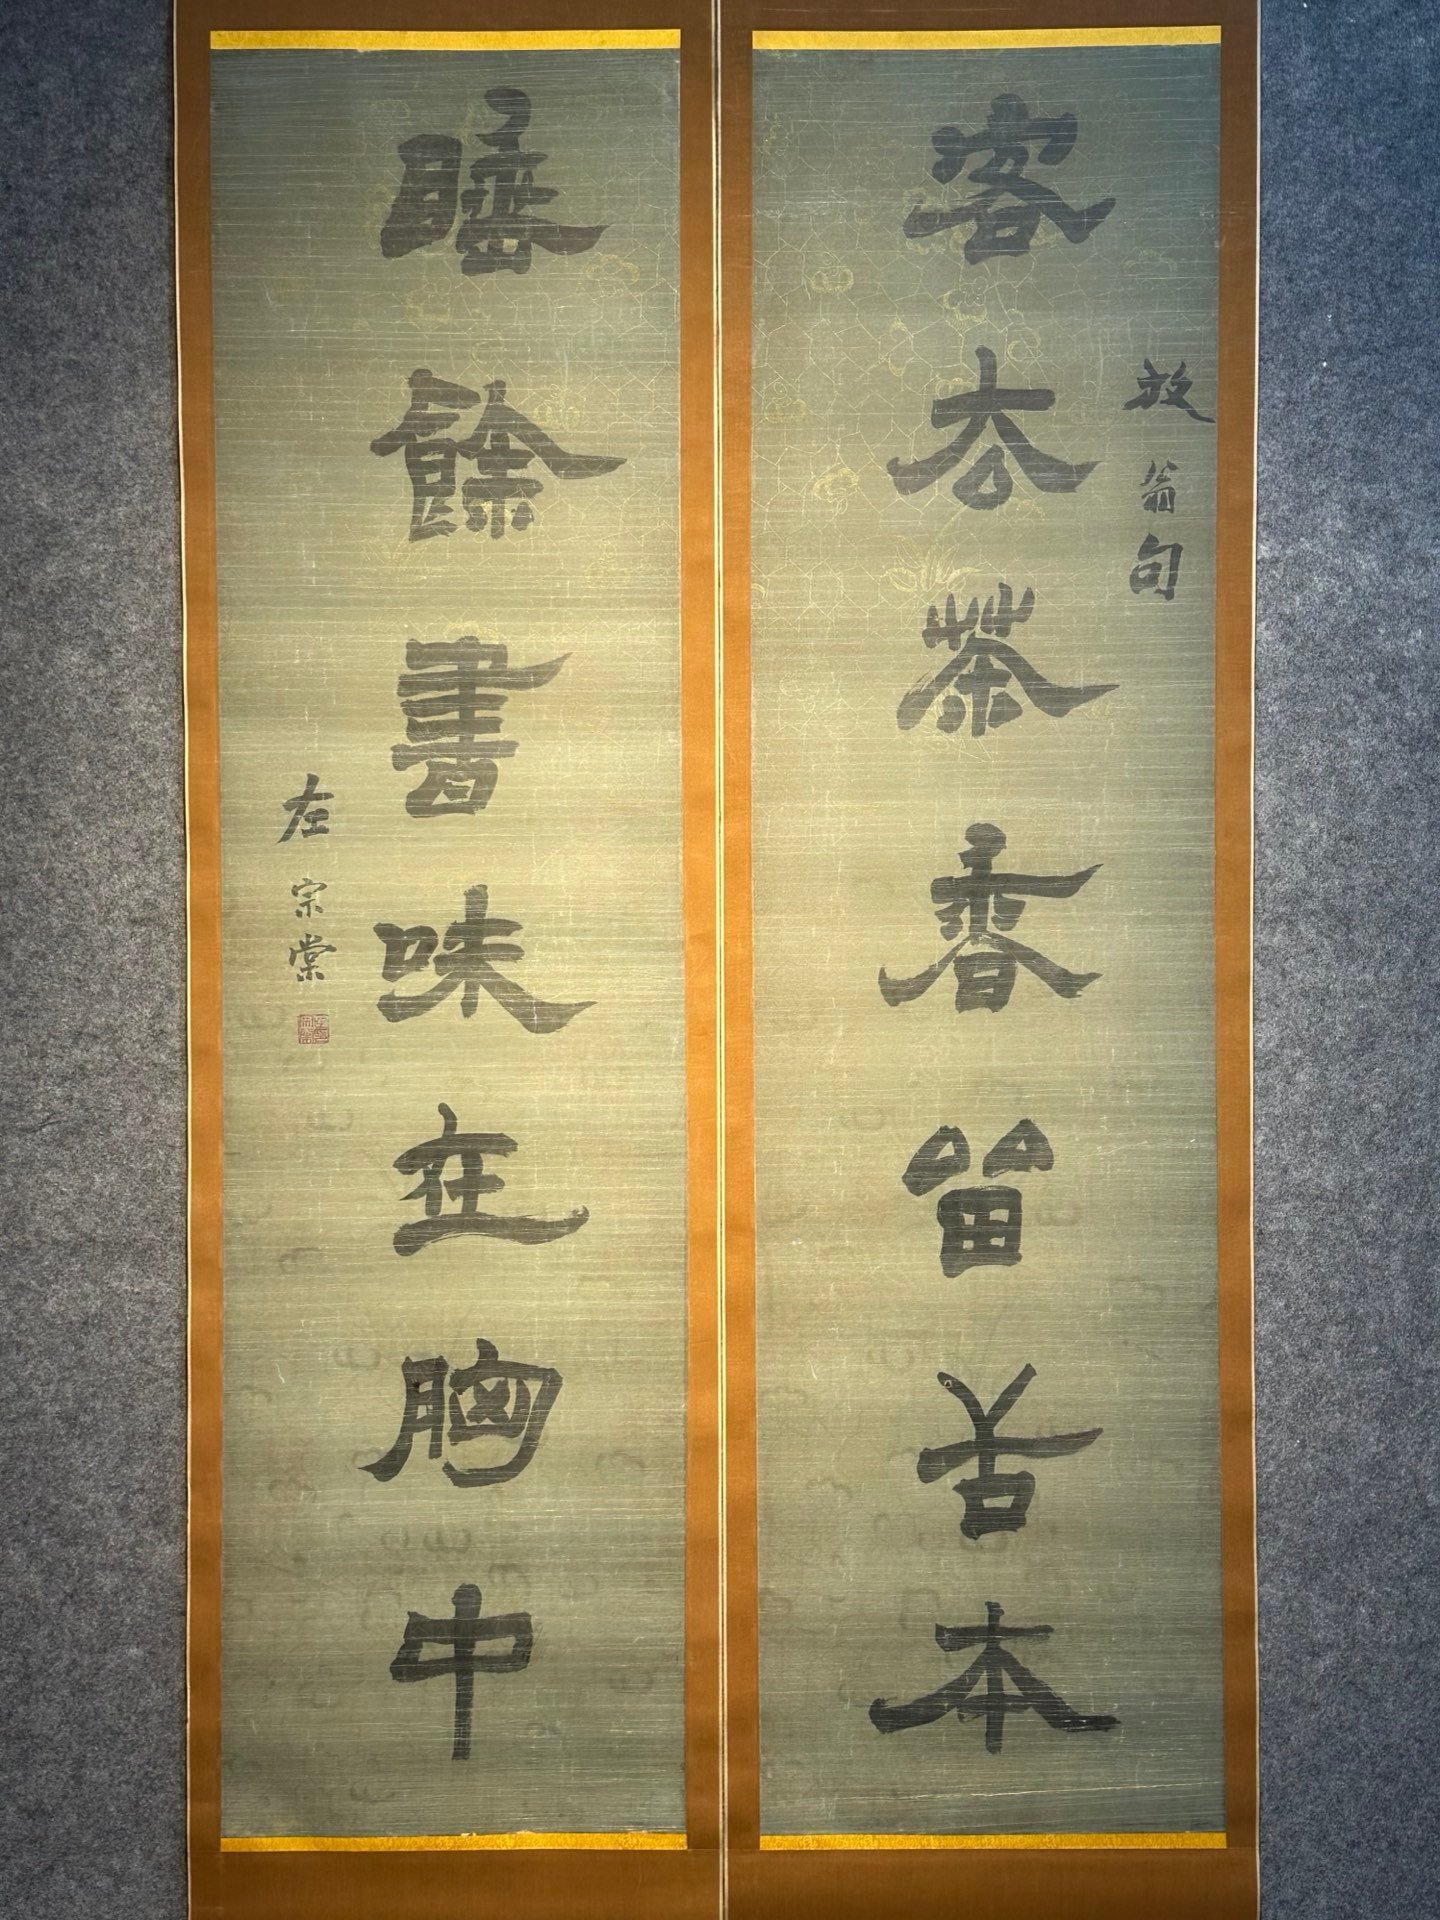 放翁句
客去茶香留舌本
睡餘書味在胸中
左宗棠